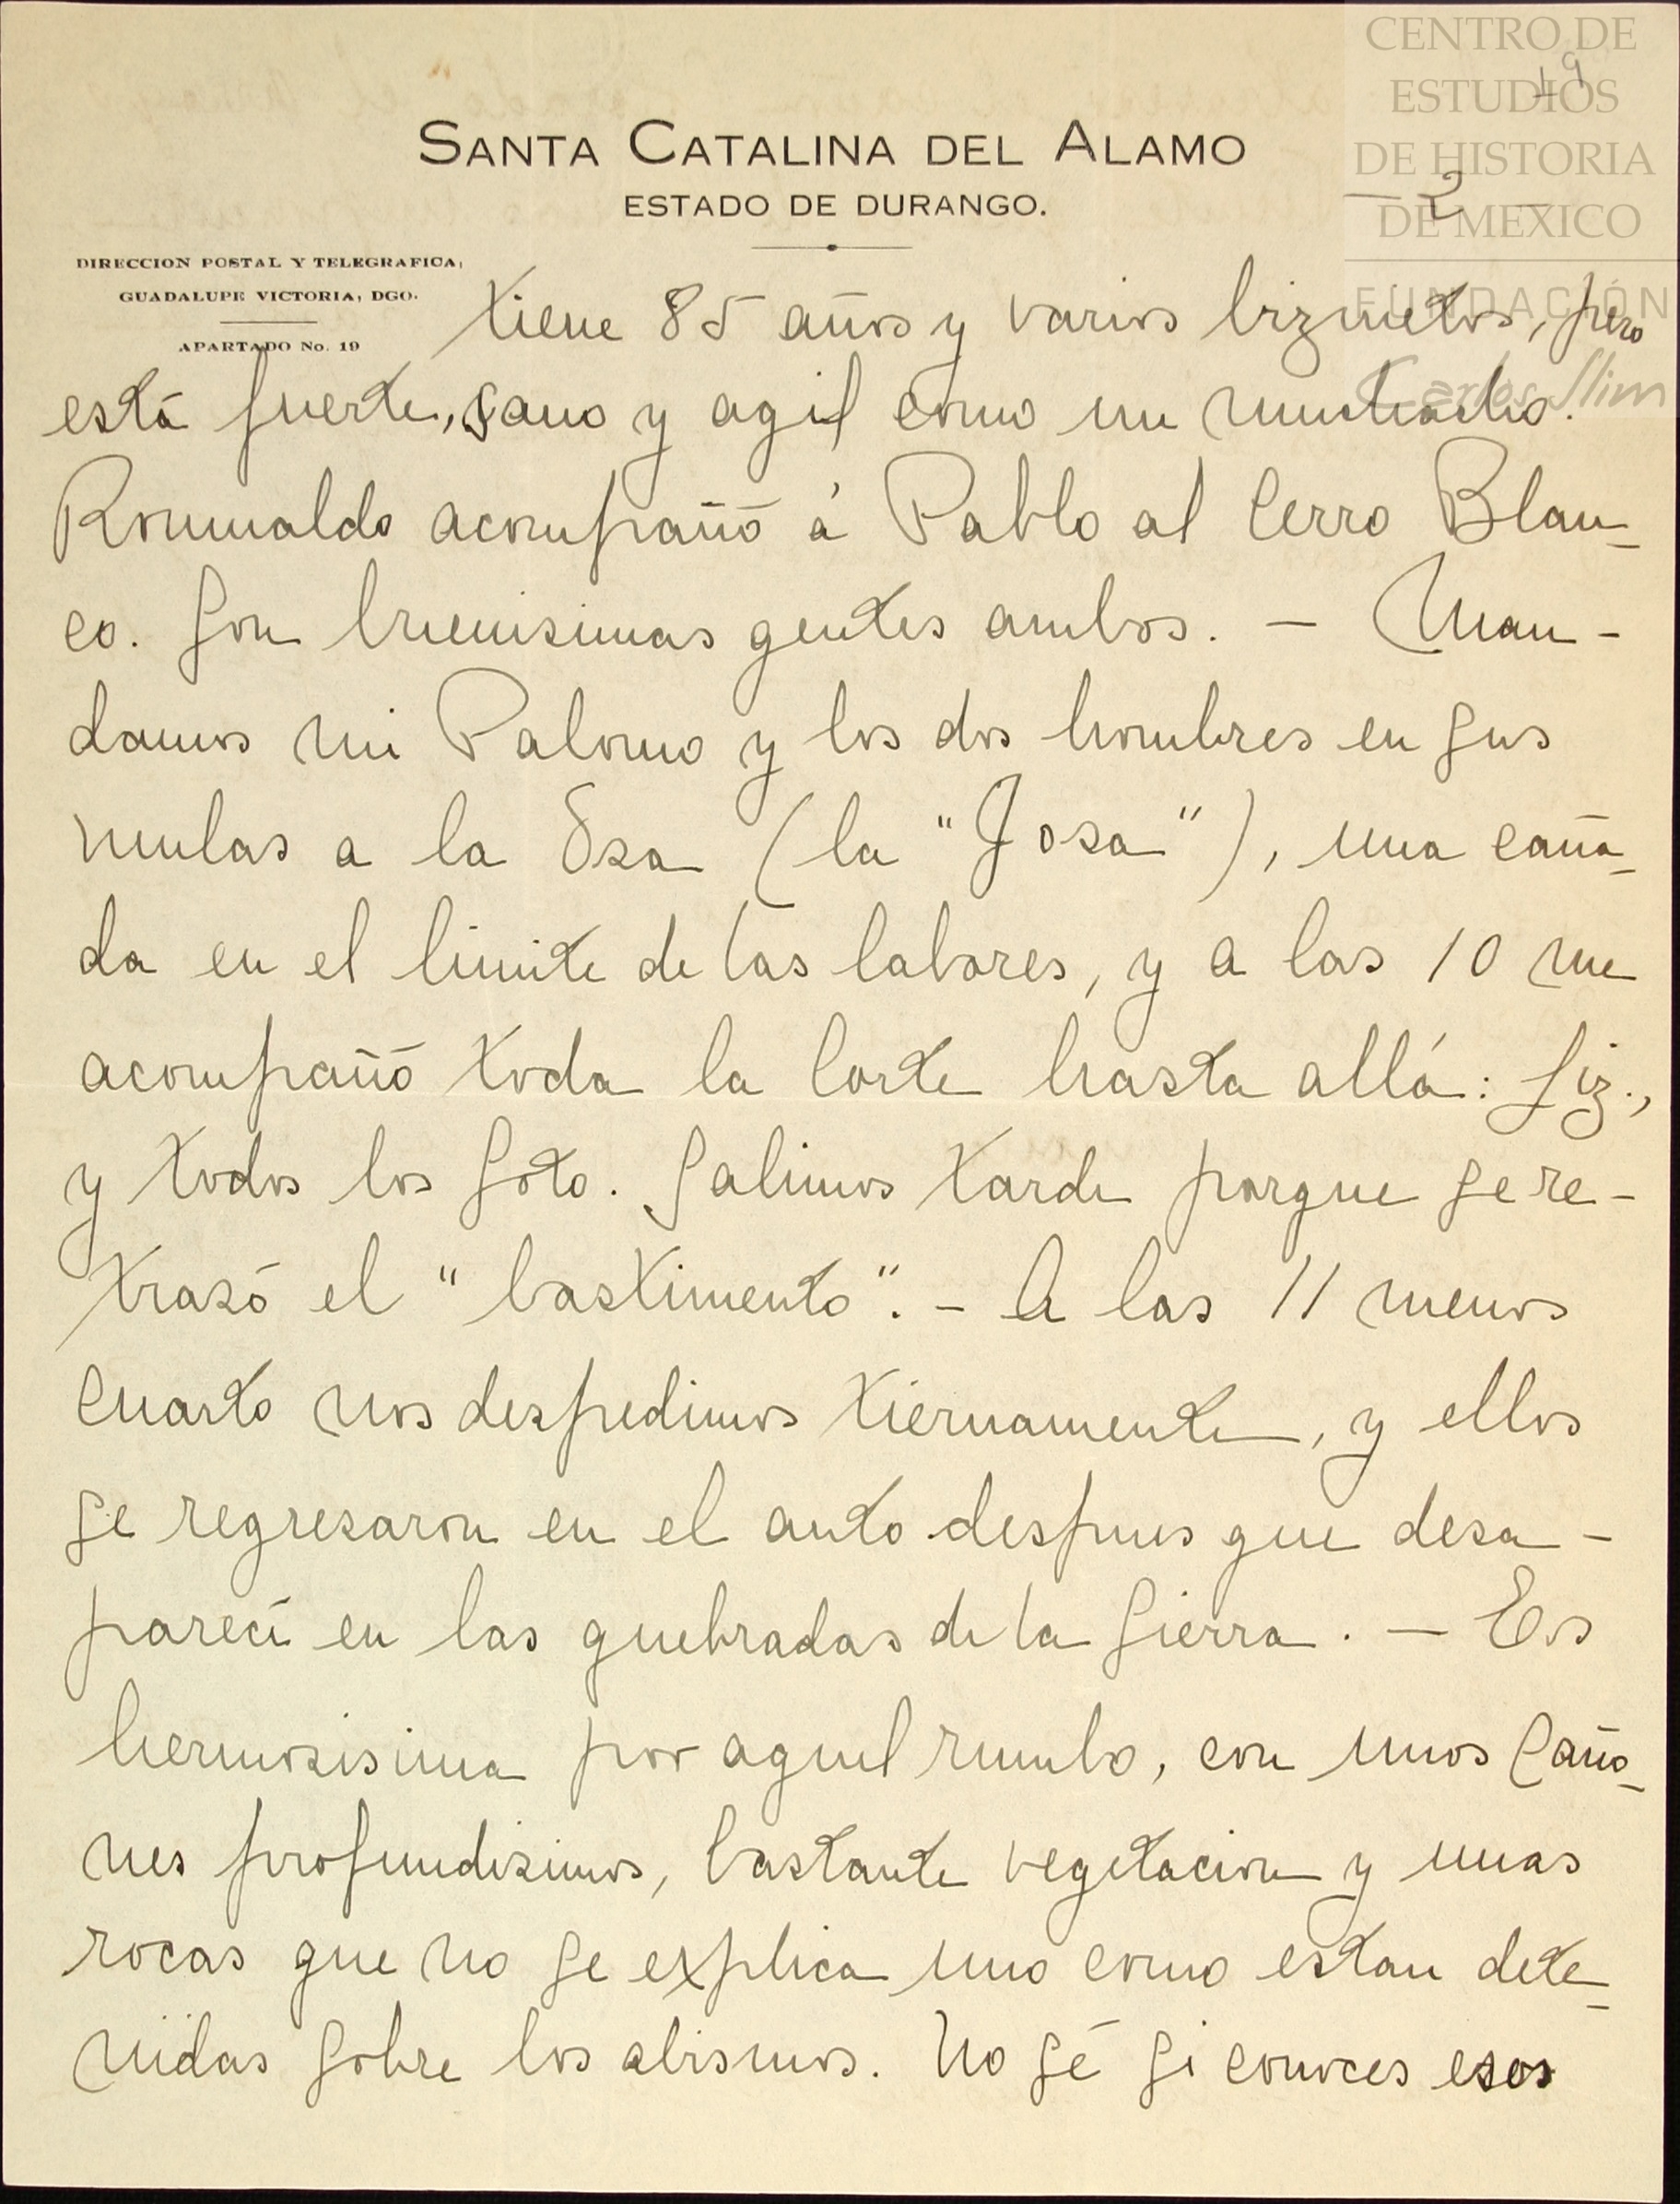 CENTRO DE
ESTUDIOS
DE HISTORIA
DE MEXICO
FUNDACIÓN
Carlos Slim
19
- 2 -
SANTA CATALINA DEL ALAMO
ESTADO DE DURANGO.
DIRECCION POSTAL Y TELEGRAFICA,
GUADALUPE VICTORIA, DGO.
APARTADO No. 19
tiene 85 años y varios biznietos, pero
está fuerte, sano y agil como un muchacho.
Romualdo acompañó á Pablo al Cerro Blan-
co. Son buenisimas gentes ambos. - Man-
damos mi Palomo y los dos hombres en sus
mulas a la Osa (la "Josa"), una caña-
da en el limite de las labores, y a las 10 me
acompañó toda la Corte hasta allá: Liz.,
y todos los Soto. Salimos tarde porque se re-
trasó el "bastimento". - A las 11 menos
cuarto nos despedimos tiernamente, y ellos
se regresaron en el auto despues que desa-
parecí en las quebradas de la Sierra. - Es
hermosisima por aquel rumbo, con unos Caño-
nes profundisimos, bastante vegetacion y unas
rocas que no se explica uno como estan dete-
nidas sobre los abismos. No sé si conoces esos